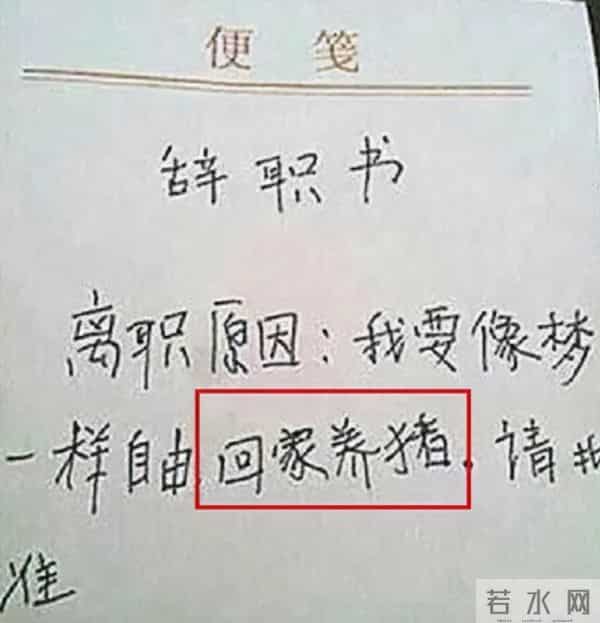 便笺
辞职书
离职原因:我要像梦
一样自由,回家养猪.请
准
若水网